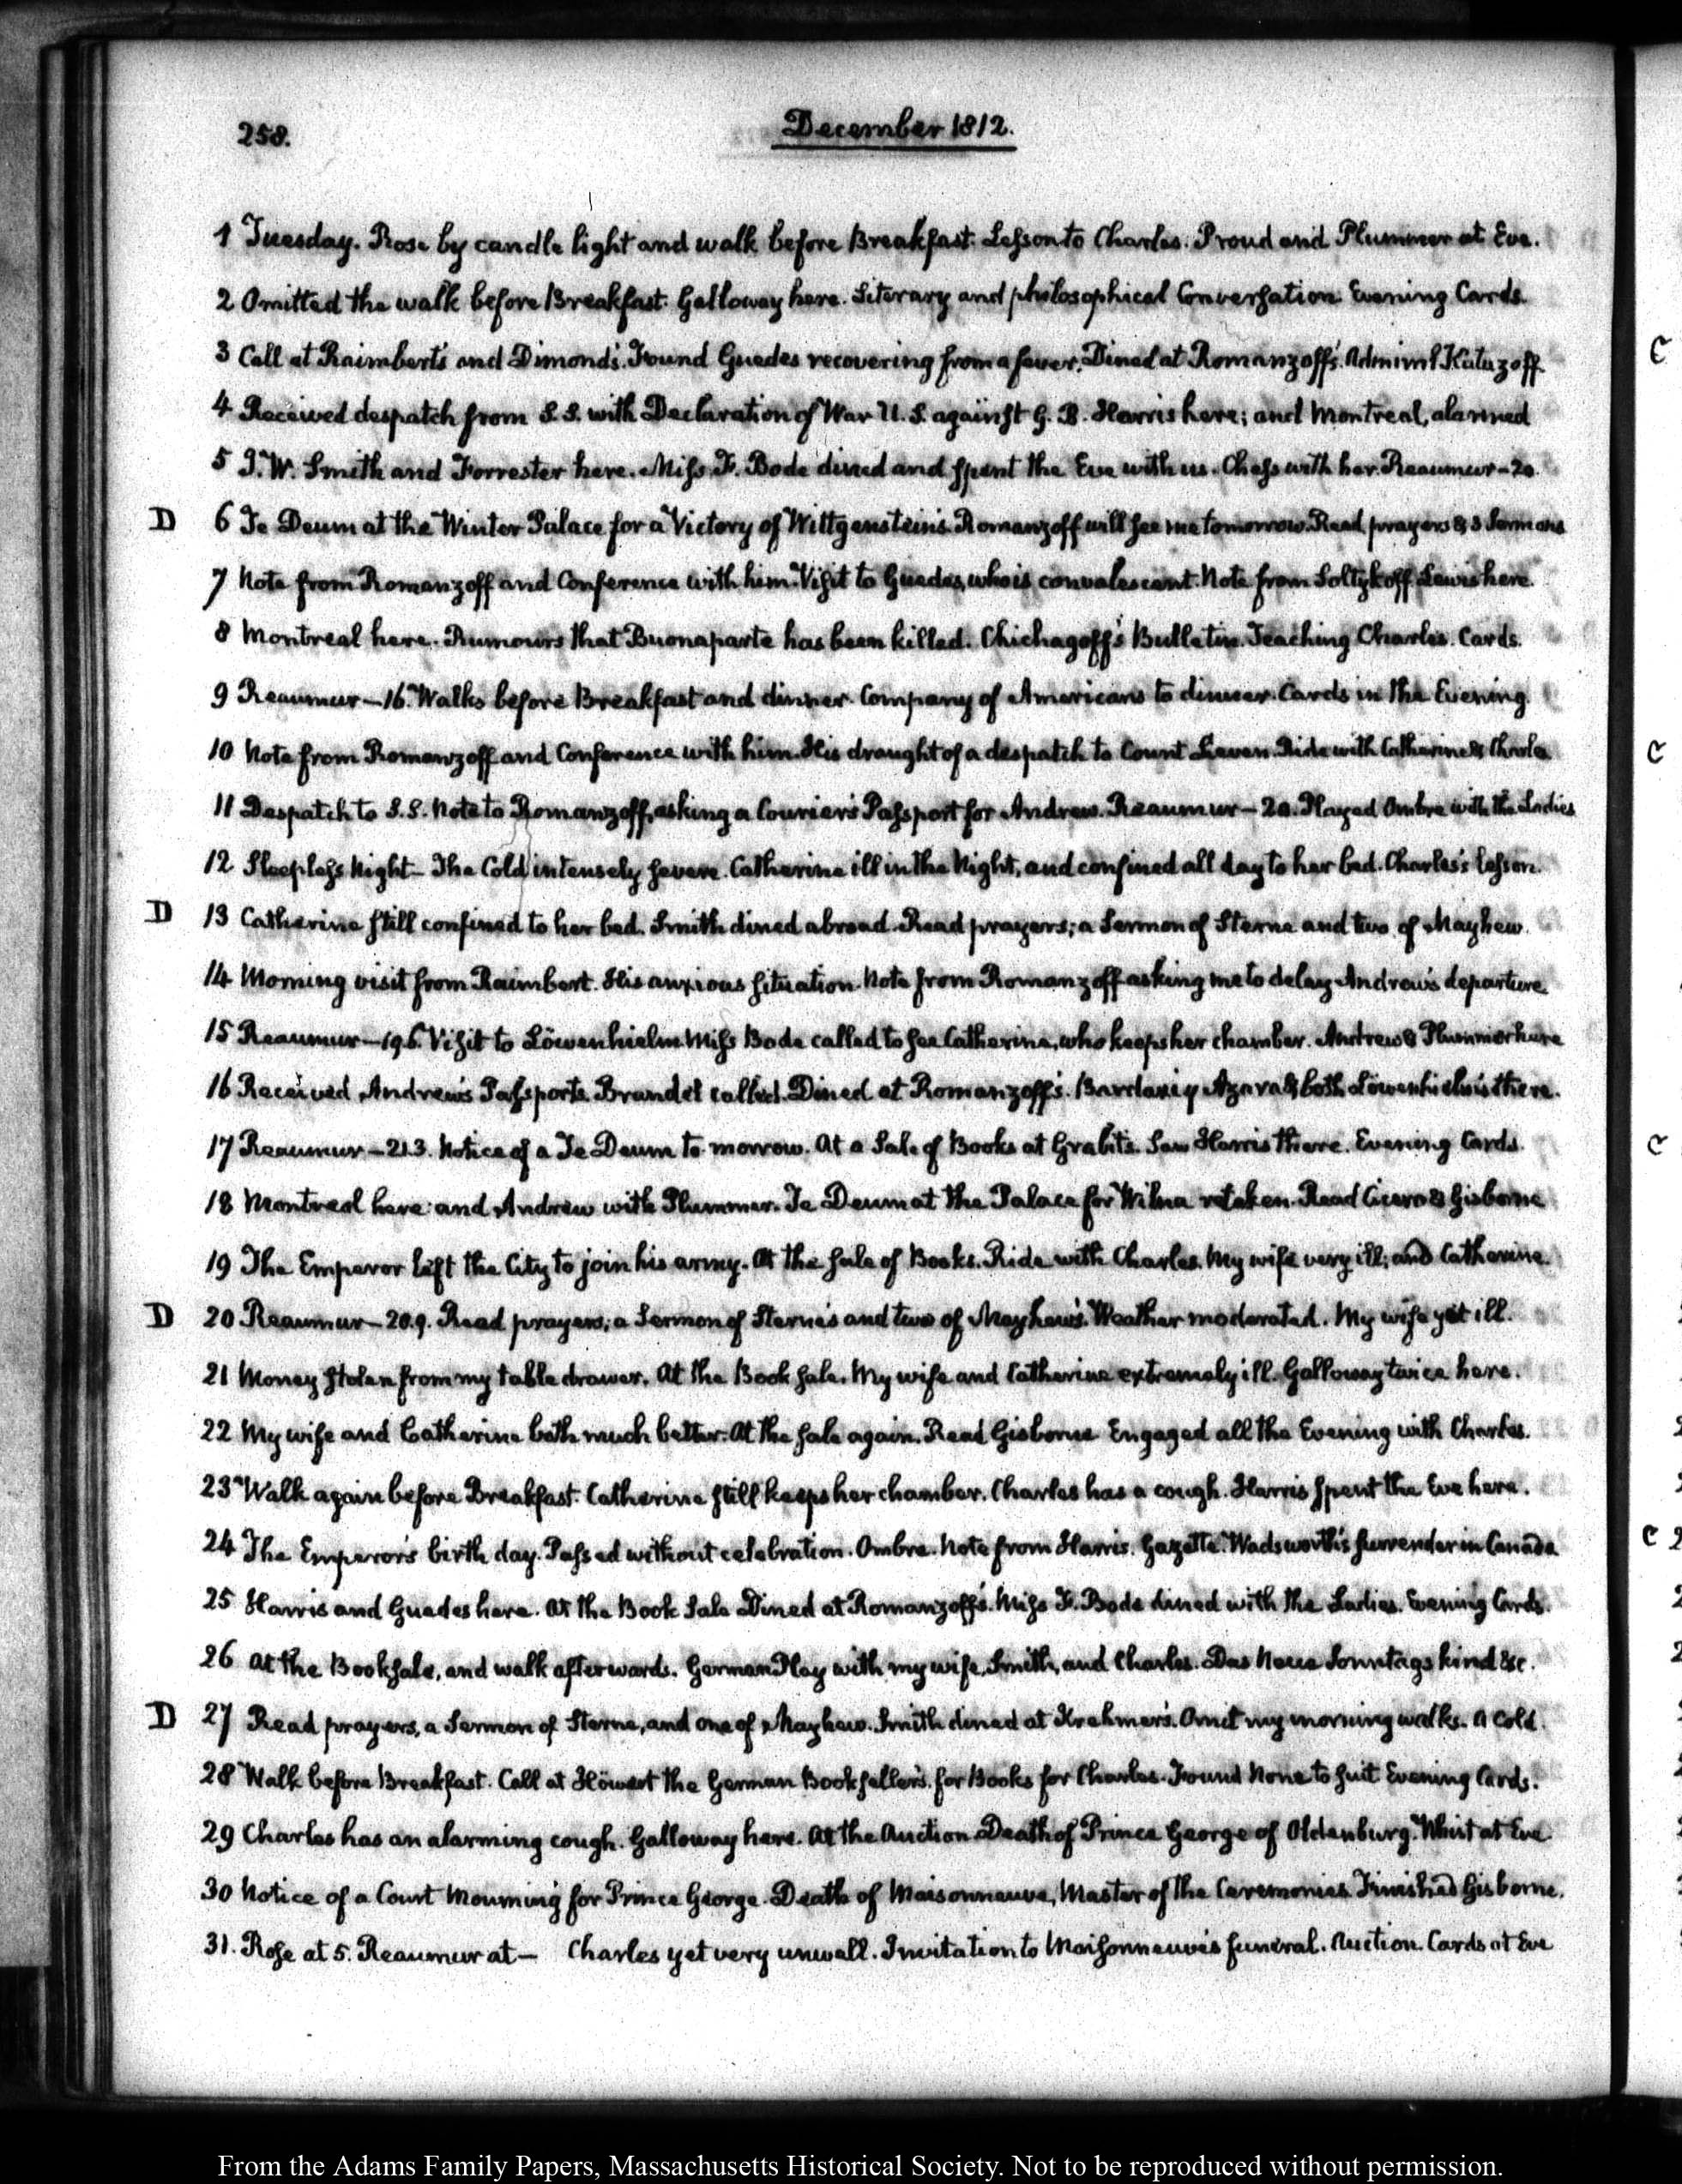 258.
December 1812.
1 Tuesday. Rose by candle light and walk before Breakfast. Lesson to Charles. Proud and Plummer at Eve.
2 Omitted the walk before Breakfast. Galloway here. Literary and philosophical Conversation. Evening Cards.
3 Call at Raimbert's and Dimond's. Found Guedes recovering from a fever. Dined at Romanzoff's. Admiral Kutuzoff
4 Received despatch from S.S. with Declaration of War U.S. against G.B. Harris here; and Montreal, alarmed
5 J. W. Smith and Forrester here. Miss F. Bode dined and spent the Eve with us. Chess with her. Reaumur–20.
D 6 Te Deum at the Winter Palace for a Victory of Wittgenstein's. Romanzoff will see me tomorrow. Read prayers & 3 Sermons
7 Note from Romanzoff and Conference with him. Visit to Guedes, who is convalescent. Note from Soltykoff. Lewis here.
8 Montreal here. Rumours that Buonaparte has been killed. Chichagoff's Bulletin. Teaching Charles. Cards.
9 Reaumur–16. Walks before Breakfast and dinner. Company of Americans to dinner. Cards in the Evening.
10 Note from Romanzoff and Conference with him. His draught of a despatch to Count Lieven. Ride with Catherine & Charles
11 Despatch to S.S. Note to Romanzoff, asking a Courier's Passport for Andrew. Reaumur–20. Played Ombre with the Ladies
12 Sleepless Night– The Cold intensely severe. Catherine ill in the Night, and confined all day to her bed. Charles's lesson.
D 13 Catherine still confined to her bed. Smith dined abroad. Read prayers; a Sermon of Sterne and two of Mayhew.
14 Morning visit from Raimbert. His anxious situation. Note from Romanzoff asking me to delay Andrew's departure
15 Reaumur–19.6. Visit to Löwenhielm. Miss Bode called to see Catherine, who keeps her chamber. Andrew & Plummer here
16 Received Andrew's Passports. Brandel called. Dined at Romanzoff's. Bardaxi y Azara & both Löwenhielm's there.
17 Reaumur–21.3. Notice of a Te Deum to morrow. At a Sale of Books at Grabit's. Saw Harris there. Evening Cards.
18 Montreal here: and Andrew with Plummer. Te Deum at the Palace for Wilna retaken. Read Cicero & Gisborne
19 The Emperor left the City to join his army. At the sale of Books. Ride with Charles. My wife very ill; and Catherine.
D 20 Reaumur–20.9. Read prayers; a Sermon of Sterne's and two of Mayhew's. Weather moderated. My wife yet ill.
21 Money stolen from my table drawer. At the Book sale. My wife and Catherine extremely ill. Galloway twice here.
22 My wife and Catherine both much better. At the sale again. Read Gisborne. Engaged all the Evening with Charles.
23 Walk again before Breakfast. Catherine still keeps her chamber. Charles has a cough. Harris spent the Eve here.
24 The Emperor's birth day. Passed without celebration. Ombre. Note from Harris. Gazette. Wadsworth's surrender in Canada
25 Harris and Guedes here. At the Book Sale. Dined at Romanzoff's. Miss F. Bode dined with the Ladies. Evening Cards.
26 At the Book sale, and walk afterwards. German Play with my wife, Smith, and Charles. Das Neue Sonntags kind &c.
D 27 Read prayers, a Sermon of Sterne, and one of Mayhew. Smith dined at Krehmer's. Omit my morning walks. A cold.
28 Walk before Breakfast. Call at the German Bookseller's, for Books for Charles. Found None to suit. Evening Cards.
29 Charles has an alarming cough. Galloway here. At the Auction. Death of Prince George of Oldenburg. Whist at Eve.
30 Notice of a Court Mourning for Prince George. Death of Maisonneuve, Master of the Ceremonies. Finished Gisborne.
31. Rose at 5. Reaumur at– Charles yet very unwell. Invitation to Maisonneuve's funeral. Auction. Cards at Eve
From the Adams Family Papers, Massachusetts Historical Society. Not to be reproduced without permission.